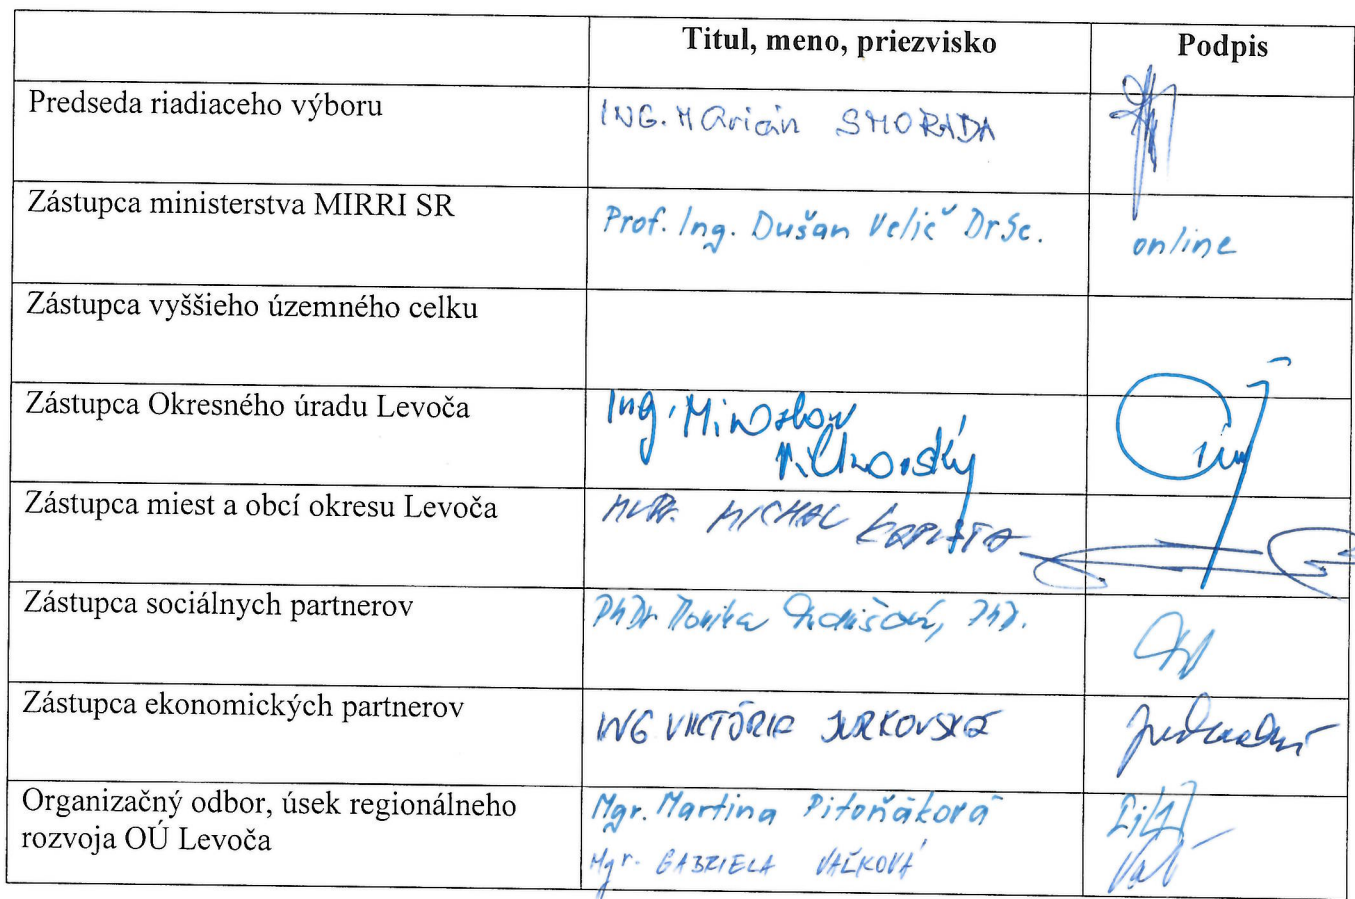 Titul, meno, priezvisko Podpis
Predseda riadiaceho výboru ING. Marián SMORADA
Zástupca ministerstva MIRRI SR Prof. Ing. Dušan Velič DrSc. online
Zástupca vyššieho územného celku
Zástupca Okresného úradu Levoča Ing. Miroslav
Zástupca miest a obcí okresu Levoča MICHAL KAPUSTA
Zástupca sociálnych partnerov PhDr. Monika PhD.
Zástupca ekonomických partnerov ING VIKTÓRIA JURKOVSKÁ
Organizačný odbor, úsek regionálneho Mgr. Martina Pitoňáková
rozvoja OÚ Levoča Mgr. GABRIELA VAĽKOVÁ